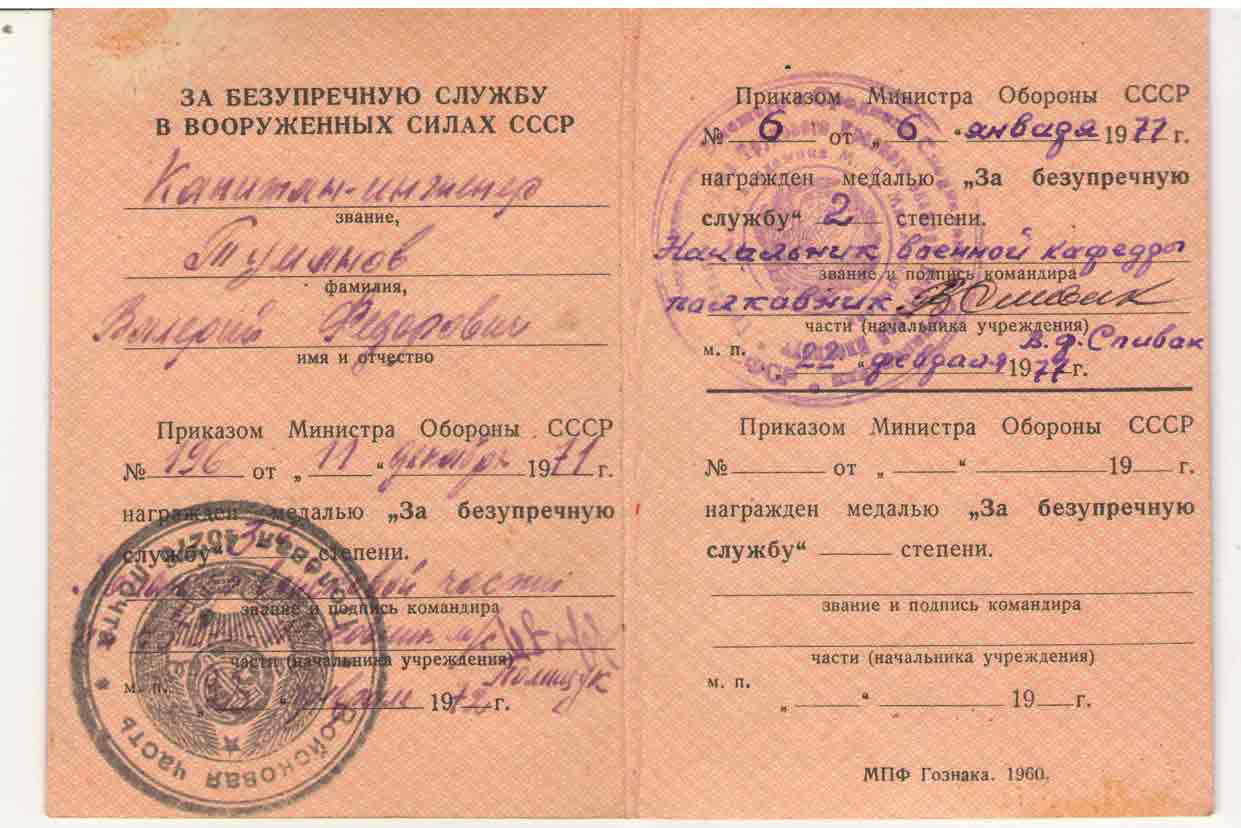 ЗА БЕЗУПРЕЧНУЮ СЛУЖБУ
В ВООРУЖЕННЫХ СИЛАХ СССР
Капитан-инженер
звание,
Туманов
фамилия,
Валерий Федорович
имя и отчество
Приказом Министра Обороны СССР
№ 196 от „ 11 “ декабря 1971 г.
награжден медалью „За безупречную
службу“ 3 степени.
войсковой части
звание и подпись командира
части (начальника учреждения)
Полищук
м. п.
января 1972 г.
Войсковая часть * Полевая почта *
Приказом Министра Обороны СССР
№ 6 от „ 6 “ января 1977 г.
награжден медалью „За безупречную
службу“ 2 степени.
Начальник военной кафедры
звание и подпись командира
полковник
части (начальника учреждения)
В.Ф. Спивак
м. п.
„ 22 “ февраля 1977 г.
Приказом Министра Обороны СССР
№ от „ “ 19 г.
награжден медалью „За безупречную
службу“ степени.
звание и подпись командира
части (начальника учреждения)
м. п.
„ “ 19 г.
МПФ Гознака. 1960.